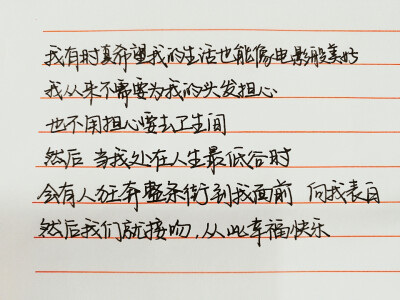 我有时真希望我的生活也能像电影般美好
我从来不需要为我的头发担心
也不用担心要去卫生间
然后 当我处在人生最低谷时
会有人狂奔整条街到我面前 向我表白
然后我们就接吻，从此幸福快乐